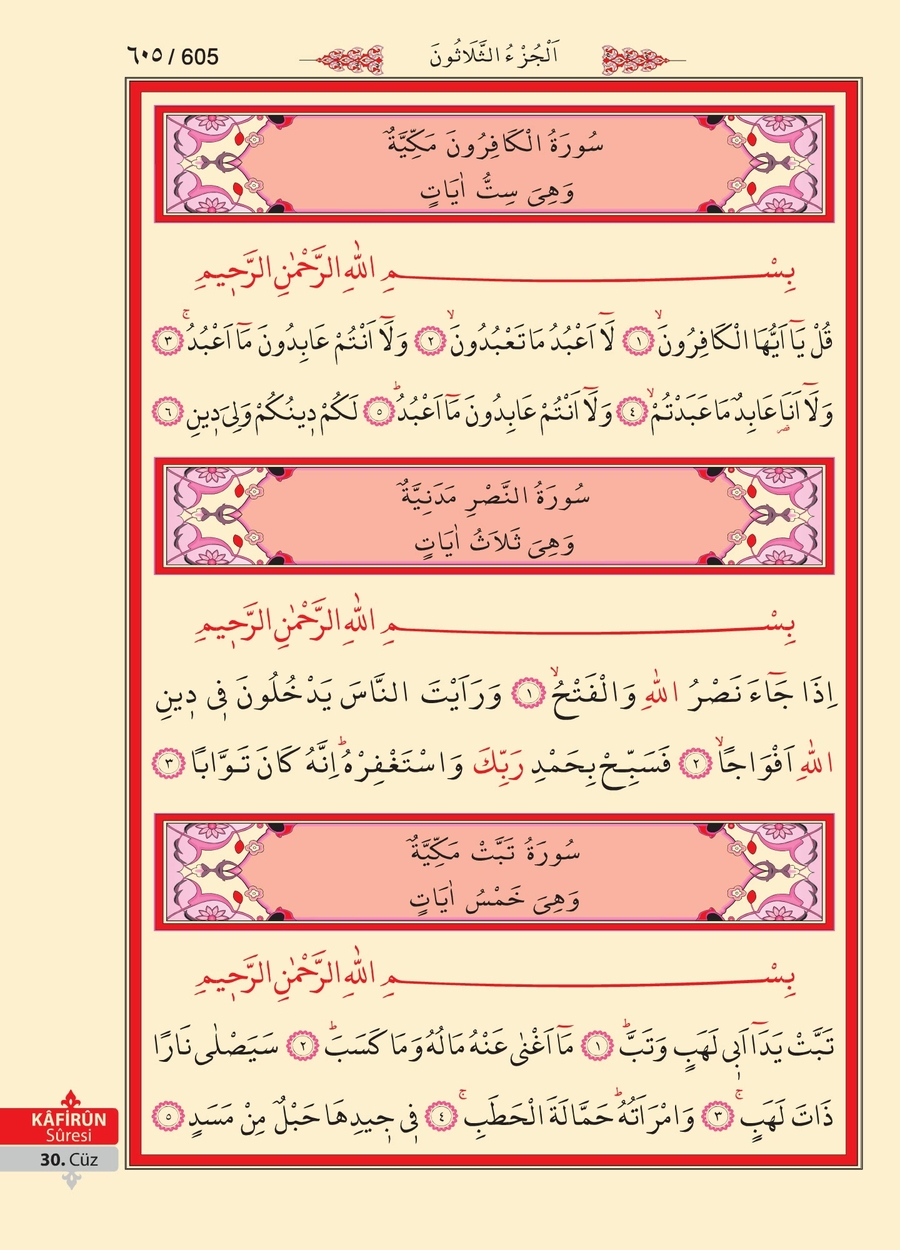 ٦٠٥ / 605
اَلْجُزْءُ الثَّلَاثُونَ
سُورَةُ الْكَافِرُونَ مَكِّيَّةٌ
وَهِيَ سِتُّ اٰيَاتٍ
بِسْمِ اللّٰهِ الرَّحْمٰنِ الرَّح۪يمِ
قُلْ يَٓا اَيُّهَا الْكَافِرُونَۙ ﴿١﴾ لَٓا اَعْبُدُ مَا تَعْبُدُونَۙ ﴿٢﴾ وَلَٓا اَنْتُمْ عَابِدُونَ مَٓا اَعْبُدُۚ ﴿٣﴾
وَلَٓا اَنَا۬ عَابِدٌ مَا عَبَدْتُمْۙ ﴿٤﴾ وَلَٓا اَنْتُمْ عَابِدُونَ مَٓا اَعْبُدُۜ ﴿٥﴾ لَكُمْ د۪ينُكُمْ وَلِيَ د۪ينِ ﴿٦﴾
سُورَةُ النَّصْرِ مَدَنِيَّةٌ
وَهِيَ ثَلَاثُ اٰيَاتٍ
بِسْمِ اللّٰهِ الرَّحْمٰنِ الرَّح۪يمِ
اِذَا جَٓاءَ نَصْرُ اللّٰهِ وَالْفَتْحُۙ ﴿١﴾ وَرَاَيْتَ النَّاسَ يَدْخُلُونَ ف۪ي د۪ينِ
اللّٰهِ اَفْوَاجًاۙ ﴿٢﴾ فَسَبِّحْ بِحَمْدِ رَبِّكَ وَاسْتَغْفِرْهُۜ اِنَّهُ كَانَ تَوَّابًا ﴿٣﴾
سُورَةُ تَبَّتْ مَكِّيَّةٌ
وَهِيَ خَمْسُ اٰيَاتٍ
بِسْمِ اللّٰهِ الرَّحْمٰنِ الرَّح۪يمِ
تَبَّتْ يَدَٓا اَب۪ي لَهَبٍ وَتَبَّۜ ﴿١﴾ مَٓا اَغْنٰى عَنْهُ مَالُهُ وَمَا كَسَبَۜ ﴿٢﴾ سَيَصْلٰى نَارًا
ذَاتَ لَهَبٍۚ ﴿٣﴾ وَامْرَاَتُهُۜ حَمَّالَةَ الْحَطَبِۚ ﴿٤﴾ ف۪ي ج۪يدِهَا حَبْلٌ مِنْ مَسَدٍ ﴿٥﴾
KÂFİRÛN
Sûresi
30. Cüz